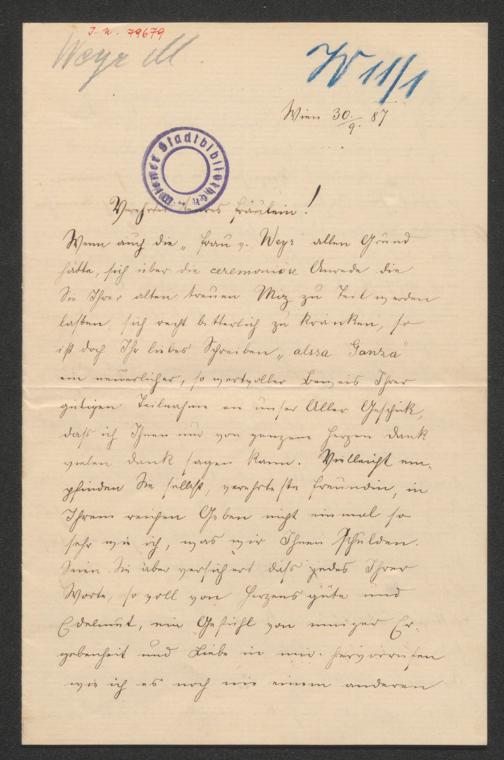 J. N. 79679
Weyr M.
W 11/1
Wien 30./9. 87
Wiener Stadtbibliothek
Verehrtes Fräulein!
Wenn auch die „Frau v. Weyr allen Grund
hätte, sich über die ceremoniöse Anrede die
Sie Ihrer alten treuen Miz zu Teil werden
lassen sich recht bitterlich zu kränken, so
ist doch Ihr liebes Schreiben „alssa Ganza"
ein neuerlicher, so wertvoller Beweis Ihrer
gütigen Teilnahme an unser Aller Geschik,
dass ich Ihnen nur von ganzem Herzen Dank
vielen Dank sagen kann. Vielleicht em-
pfinden Sie selbst, verehrteste Freundin, in
Ihrem reichen Geben nicht einmal so
sehr wie ich, was wir Ihnen schulden.
Seien Sie aber versichert dass jedes Ihrer
Worte, so voll von Herzensgüte und
Edelmut, ein Gefühl von inniger Er-
gebenheit und Liebe in mir hervorrufen
wie ich es noch nie einem anderen